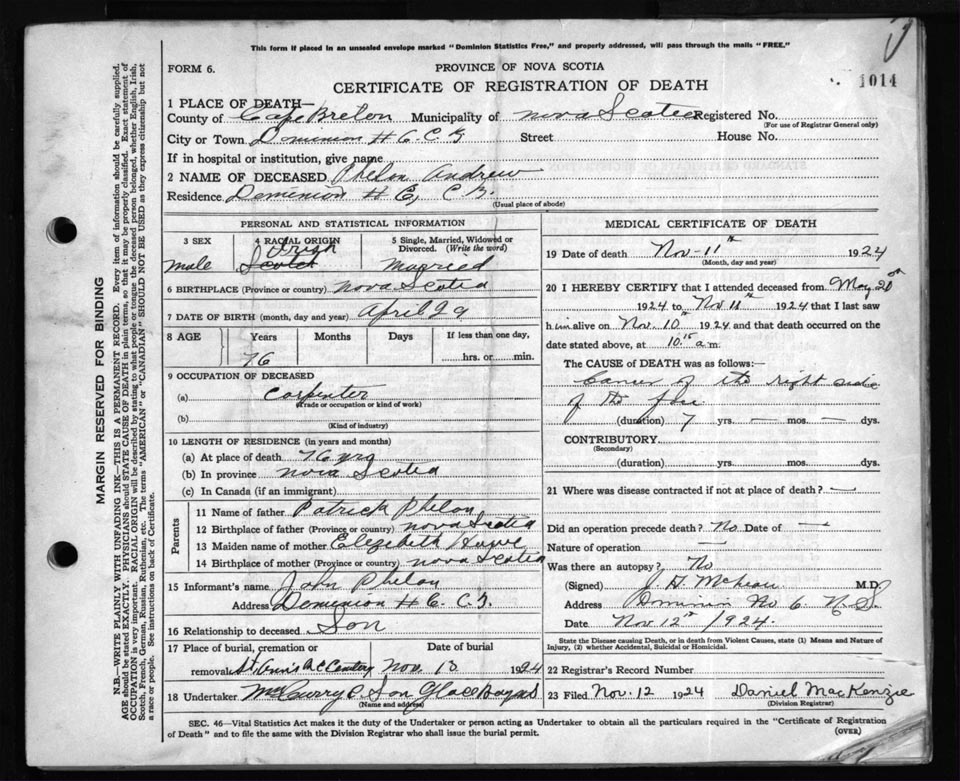 This form if placed in an unsealed envelope marked "Dominion Statistics Free," and properly addressed, will pass through the mails "FREE."
FORM 6.
PROVINCE OF NOVA SCOTIA
CERTIFICATE OF REGISTRATION OF DEATH
1014
1 PLACE OF DEATH—
County of Cape Breton Municipality of Nova Scotia Registered No.
(For use of Registrar General only)
City or Town Dominion # 6. C B Street House No.
If in hospital or institution, give name
2 NAME OF DECEASED Phelan Andrew
Residence Dominion # 6, C B.
(Usual place of abode)
PERSONAL AND STATISTICAL INFORMATION
3 SEX
male
4 RACIAL ORIGIN
Irish
Scotch
5 Single, Married, Widowed or Divorced. (Write the word)
Married
6 BIRTHPLACE (Province or country) Nova Scotia
7 DATE OF BIRTH (month, day and year) April 29
8 AGE Years Months Days If less than one day,
76 hrs. or min.
9 OCCUPATION OF DECEASED
(a) Carpenter
(Trade or occupation or kind of work)
(b)
(Kind of industry)
10 LENGTH OF RESIDENCE (in years and months)
(a) At place of death 76 yrs
(b) In province Nova Scotia
(c) In Canada (if an immigrant)
Parents
11 Name of father Patrick Phelan
12 Birthplace of father (Province or country) Nova Scotia
13 Maiden name of mother Elezibeth
14 Birthplace of mother (Province or country) Nova Scotia
15 Informant's name John Phelan
Address Dominion # 6. C. B.
16 Relationship to deceased Son
17 Place of burial, cremation or Date of burial
removal St. Ann's Nov. 13 1924
18 Undertaker McCurry & Son Glace Bay
(Name and address)
MEDICAL CERTIFICATE OF DEATH
19 Date of death Nov-11th 1924
(Month, day and year)
20 I HEREBY CERTIFY that I attended deceased from May 20th
1924 to Nov 11th 1924 that I last saw
him alive on Nov. 10th 1924 and that death occurred on
date stated above, at 10.15 a.m.
The CAUSE OF DEATH was as follows:—
Cancer of the right side
of the face
(duration) 7 yrs. — mos. — dys.
CONTRIBUTORY
(Secondary)
(duration) yrs. mos. dys.
21 Where was disease contracted if not at place of death? —
Did an operation precede death? No Date of —
Nature of operation —
Was there an autopsy? No
(Signed) McLean M.D.
Address Dominion No 6. N.S.
Date Nov 12th 1924.
State the Disease causing Death, or in death from Violent Causes, state (1) Means and Nature of Injury, (2) whether Accidental, Suicidal or Homicidal.
22 Registrar's Record Number
23 Filed Nov. 12 1924 Daniel MacKenzie
(Division Registrar)
SEC. 46—Vital Statistics Act makes it the duty of the Undertaker or person acting as Undertaker to obtain all the particulars required in the "Certificate of Registration
of Death" and to file the same with the Division Registrar who shall issue the burial permit.
(OVER)
MARGIN RESERVED FOR BINDING
N.B.—WRITE PLAINLY WITH UNFADING INK—THIS IS A PERMANENT RECORD. Every item of information should be carefully supplied.
AGE should be stated EXACTLY. PHYSICIANS should STATE CAUSE OF DEATH in plain terms, so that it may be properly classified. Exact statement of
OCCUPATION is very important. RACIAL ORIGIN will be described by stating to what people or tongue the deceased person belonged, whether English, Irish,
Scotch, French, German, Russian, Ruthenian, etc. The terms "AMERICAN" or "CANADIAN" SHOULD NOT BE USED as they express citizenship but not
a race or people. See instructions on back of Certificate.